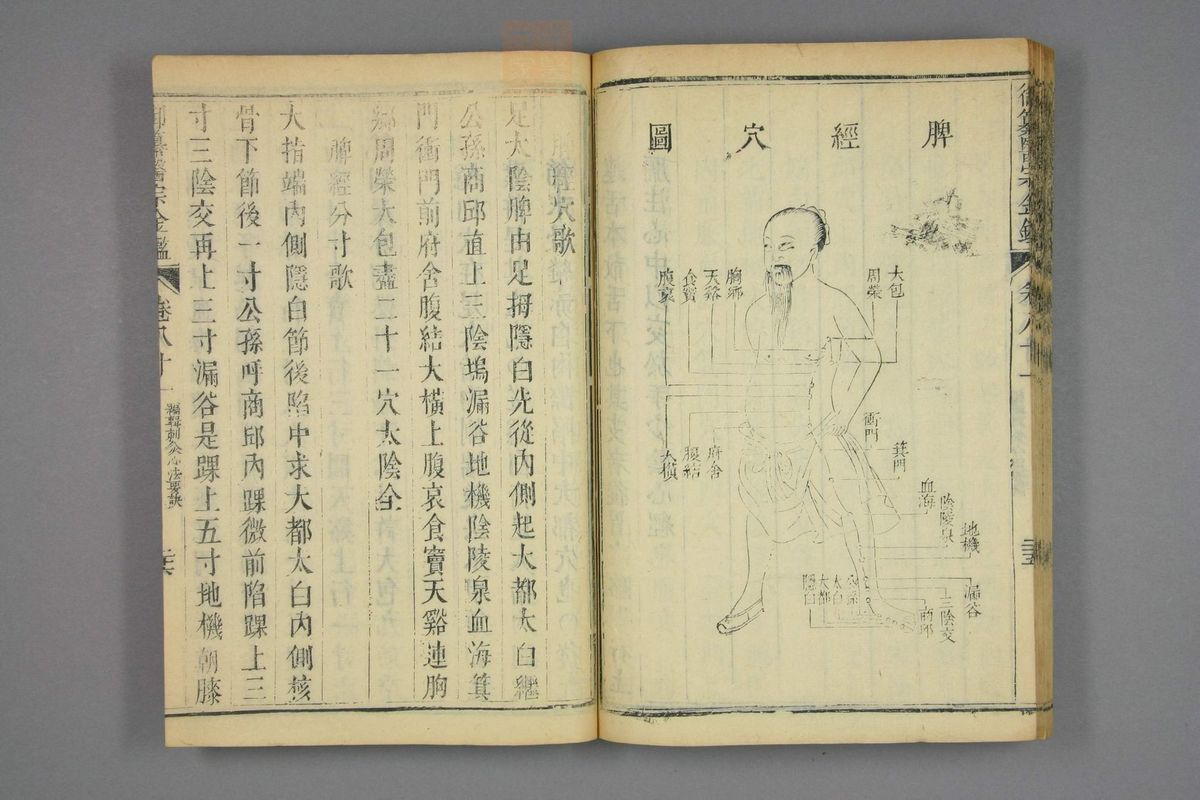 御纂醫宗金鑑 卷八十一
脾經穴圖
大包
周榮
胸鄉
天谿
食竇
腹哀
衝門
箕門
府舍
腹結
大橫
血海
陰陵泉
地機
漏谷
三陰交
商邱
公孫
太白
大都
隱白
脾經穴歌
足太陰脾由足拇隱白先從內側起大都太白繼
公孫商邱直上三陰塢漏谷地機陰陵泉血海箕
門衝門前府舍腹結大橫上腹哀食竇天谿連胸
鄉周榮大包盡二十一穴太陰全
脾經分寸歌
大指端內側隱白節後陷中求大都太白內側核
骨下節後一寸公孫呼商邱內踝微前陷踝上三
寸三陰交再上三寸漏谷是踝上五寸地機朝膝
御纂醫宗金鑑 卷八十一 編輯刺灸心法要訣